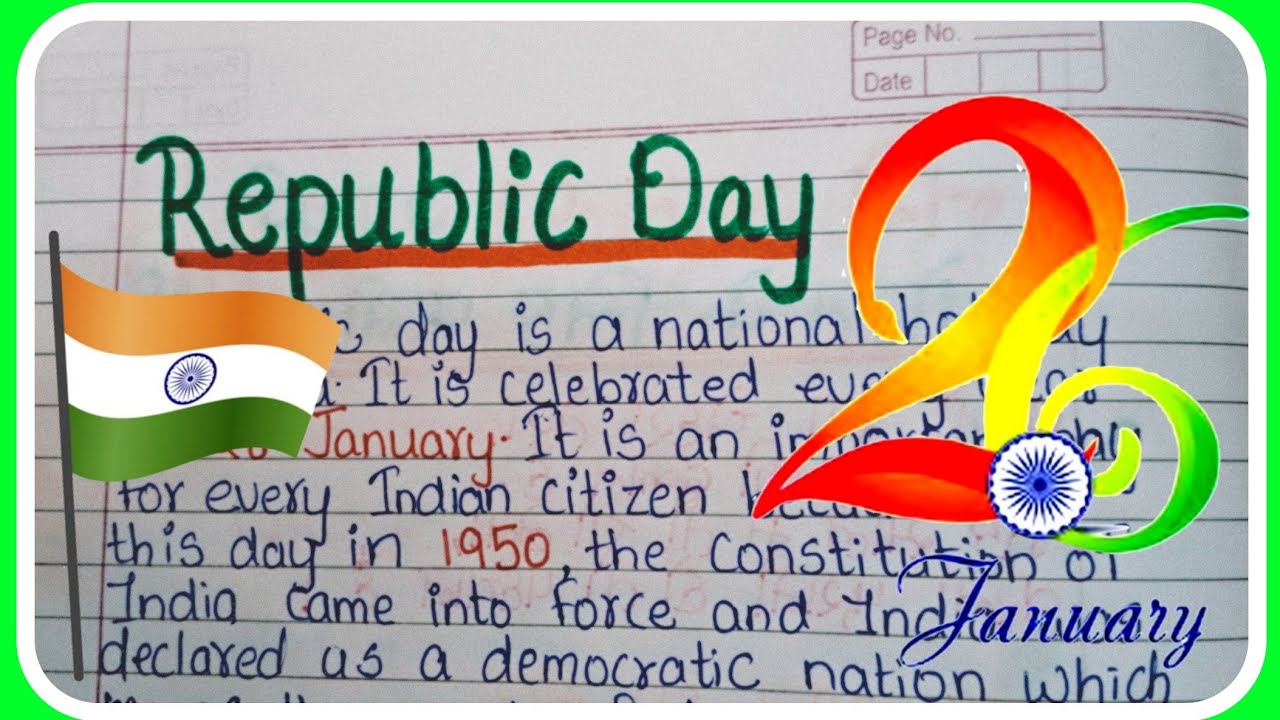 Page No.
Date
Republic Day
day is a national
It is celebrated
January. It is an
for every Indian citizen
this day in 1950, the constitution of
India came into force and
declared as a democratic nation which
26
January